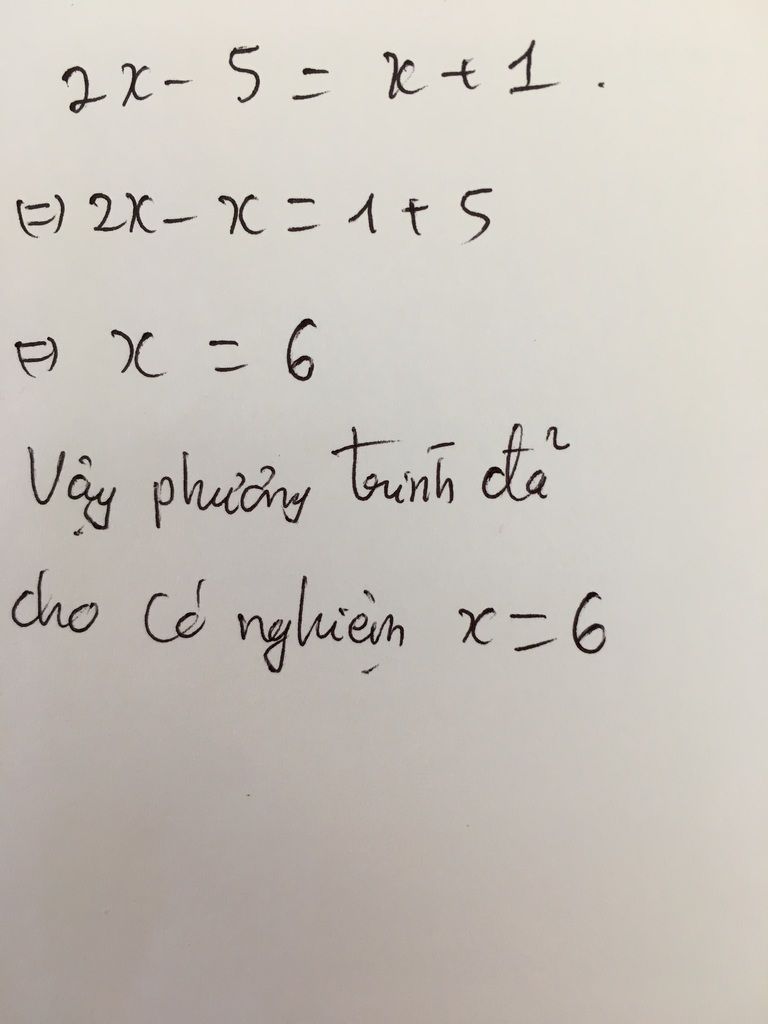 2x - 5 = x + 1 .
⇔ 2x - x = 1 + 5
⇔ x = 6
Vậy phương trình đã
cho có nghiệm x = 6